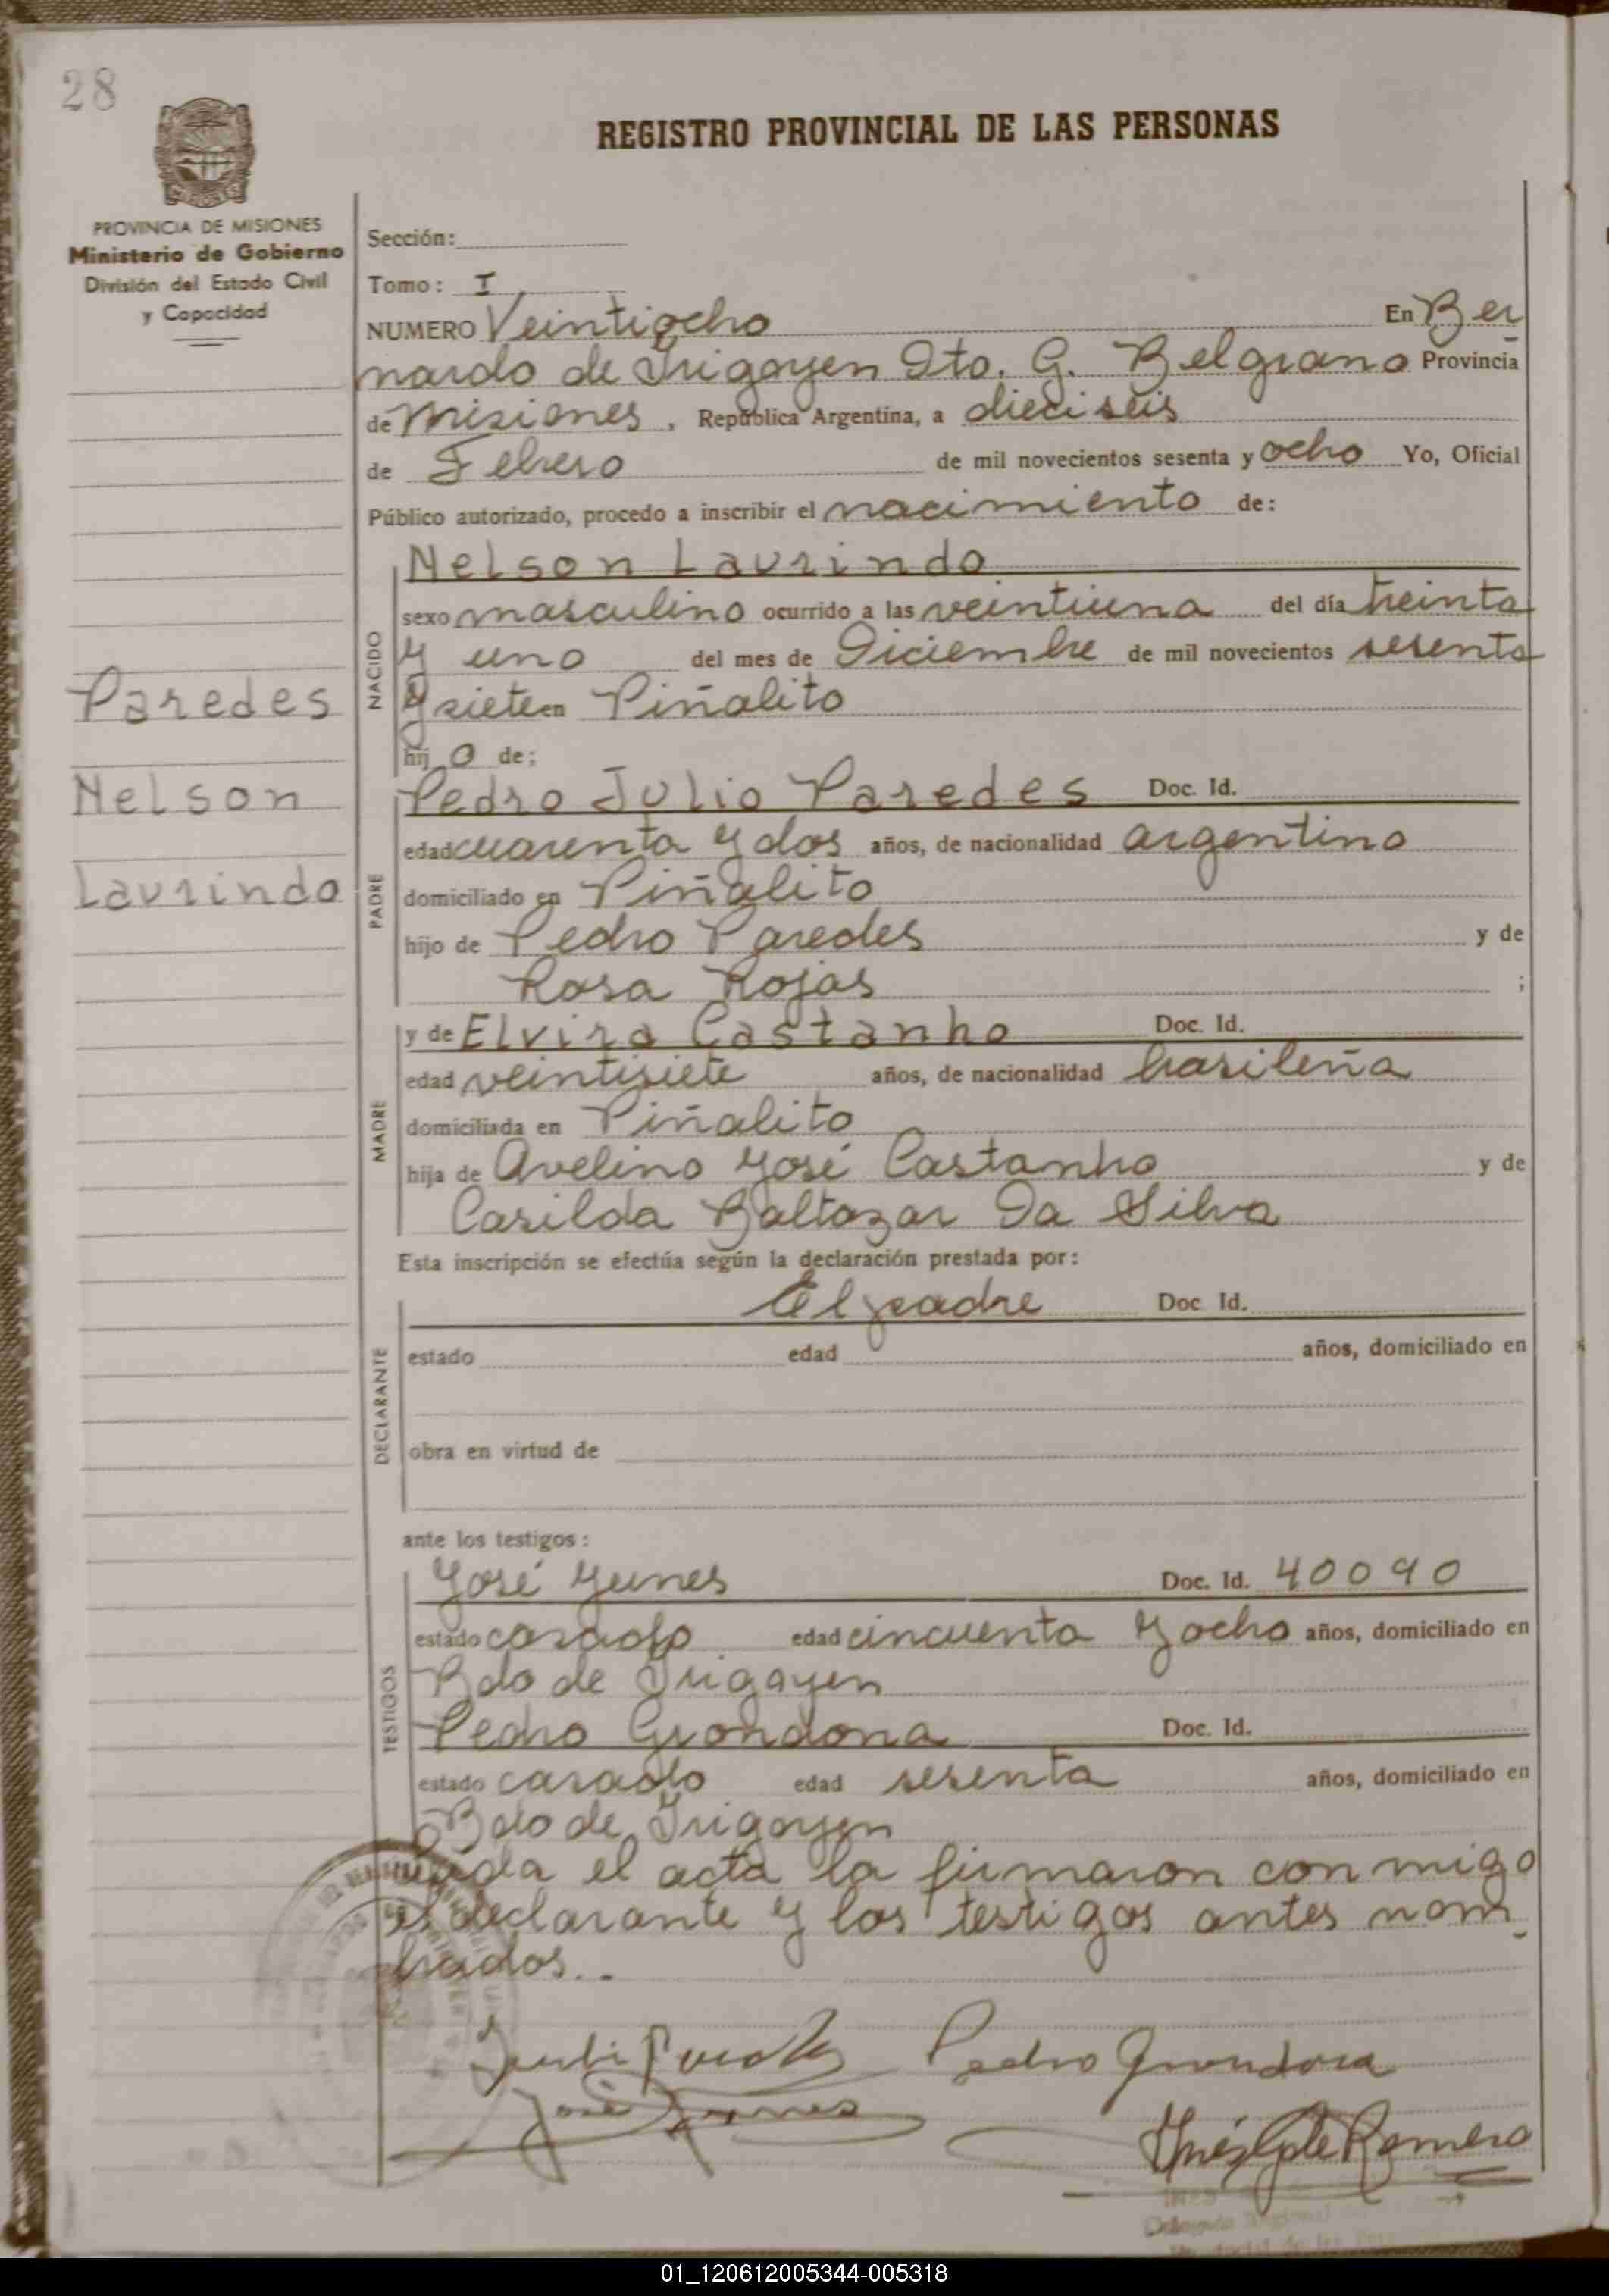 28
REGISTRO PROVINCIAL DE LAS PERSONAS
PROVINCIA DE MISIONES
Ministerio de Gobierno
División del Estado Civil
y Capacidad
Sección:
Tomo: I
NUMERO Veintiocho En Ber
nardo de Irigoyen Dto. G. Belgrano Provincia
de Misiones, República Argentina, a dieciseis
de Febrero de mil novecientos sesenta y ocho Yo, Oficial
Público autorizado, procedo a inscribir el nacimiento de:
Nelson Laurindo
sexo masculino ocurrido a las veintiuna del día treinta
y uno del mes de Diciembre de mil novecientos sesenta
y siete en Piñalito
hijo de;
NACIDO
Paredes
Nelson
Laurindo
Pedro Julio Paredes Doc. Id.
edad cuarenta y dos años, de nacionalidad argentino
domiciliado en Piñalito
hijo de Pedro Paredes y de
Rosa Rojas ;
PADRE
y de Elvira Castanho Doc. Id.
edad veintisiete años, de nacionalidad brasileña
domiciliada en Piñalito
hija de Avelino José Castanho y de
Casilda Baltazar Da Silva
MADRE
Esta inscripción se efectúa según la declaración prestada por:
El padre Doc. Id.
estado edad años, domiciliado en
obra en virtud de
DECLARANTE
ante los testigos:
José Yunes Doc. Id. 40090
estado casado edad cincuenta y ocho años, domiciliado en
Bdo de Irigoyen
Pedro Grondona Doc. Id.
estado casado edad sesenta años, domiciliado en
Bdo de Irigoyen
TESTIGOS
el acta la firmaron con migo
el declarante y los testigos antes nom
brados..
Pedro Grondona
José Yunes
Inés de Romero
01_120612005344-005318